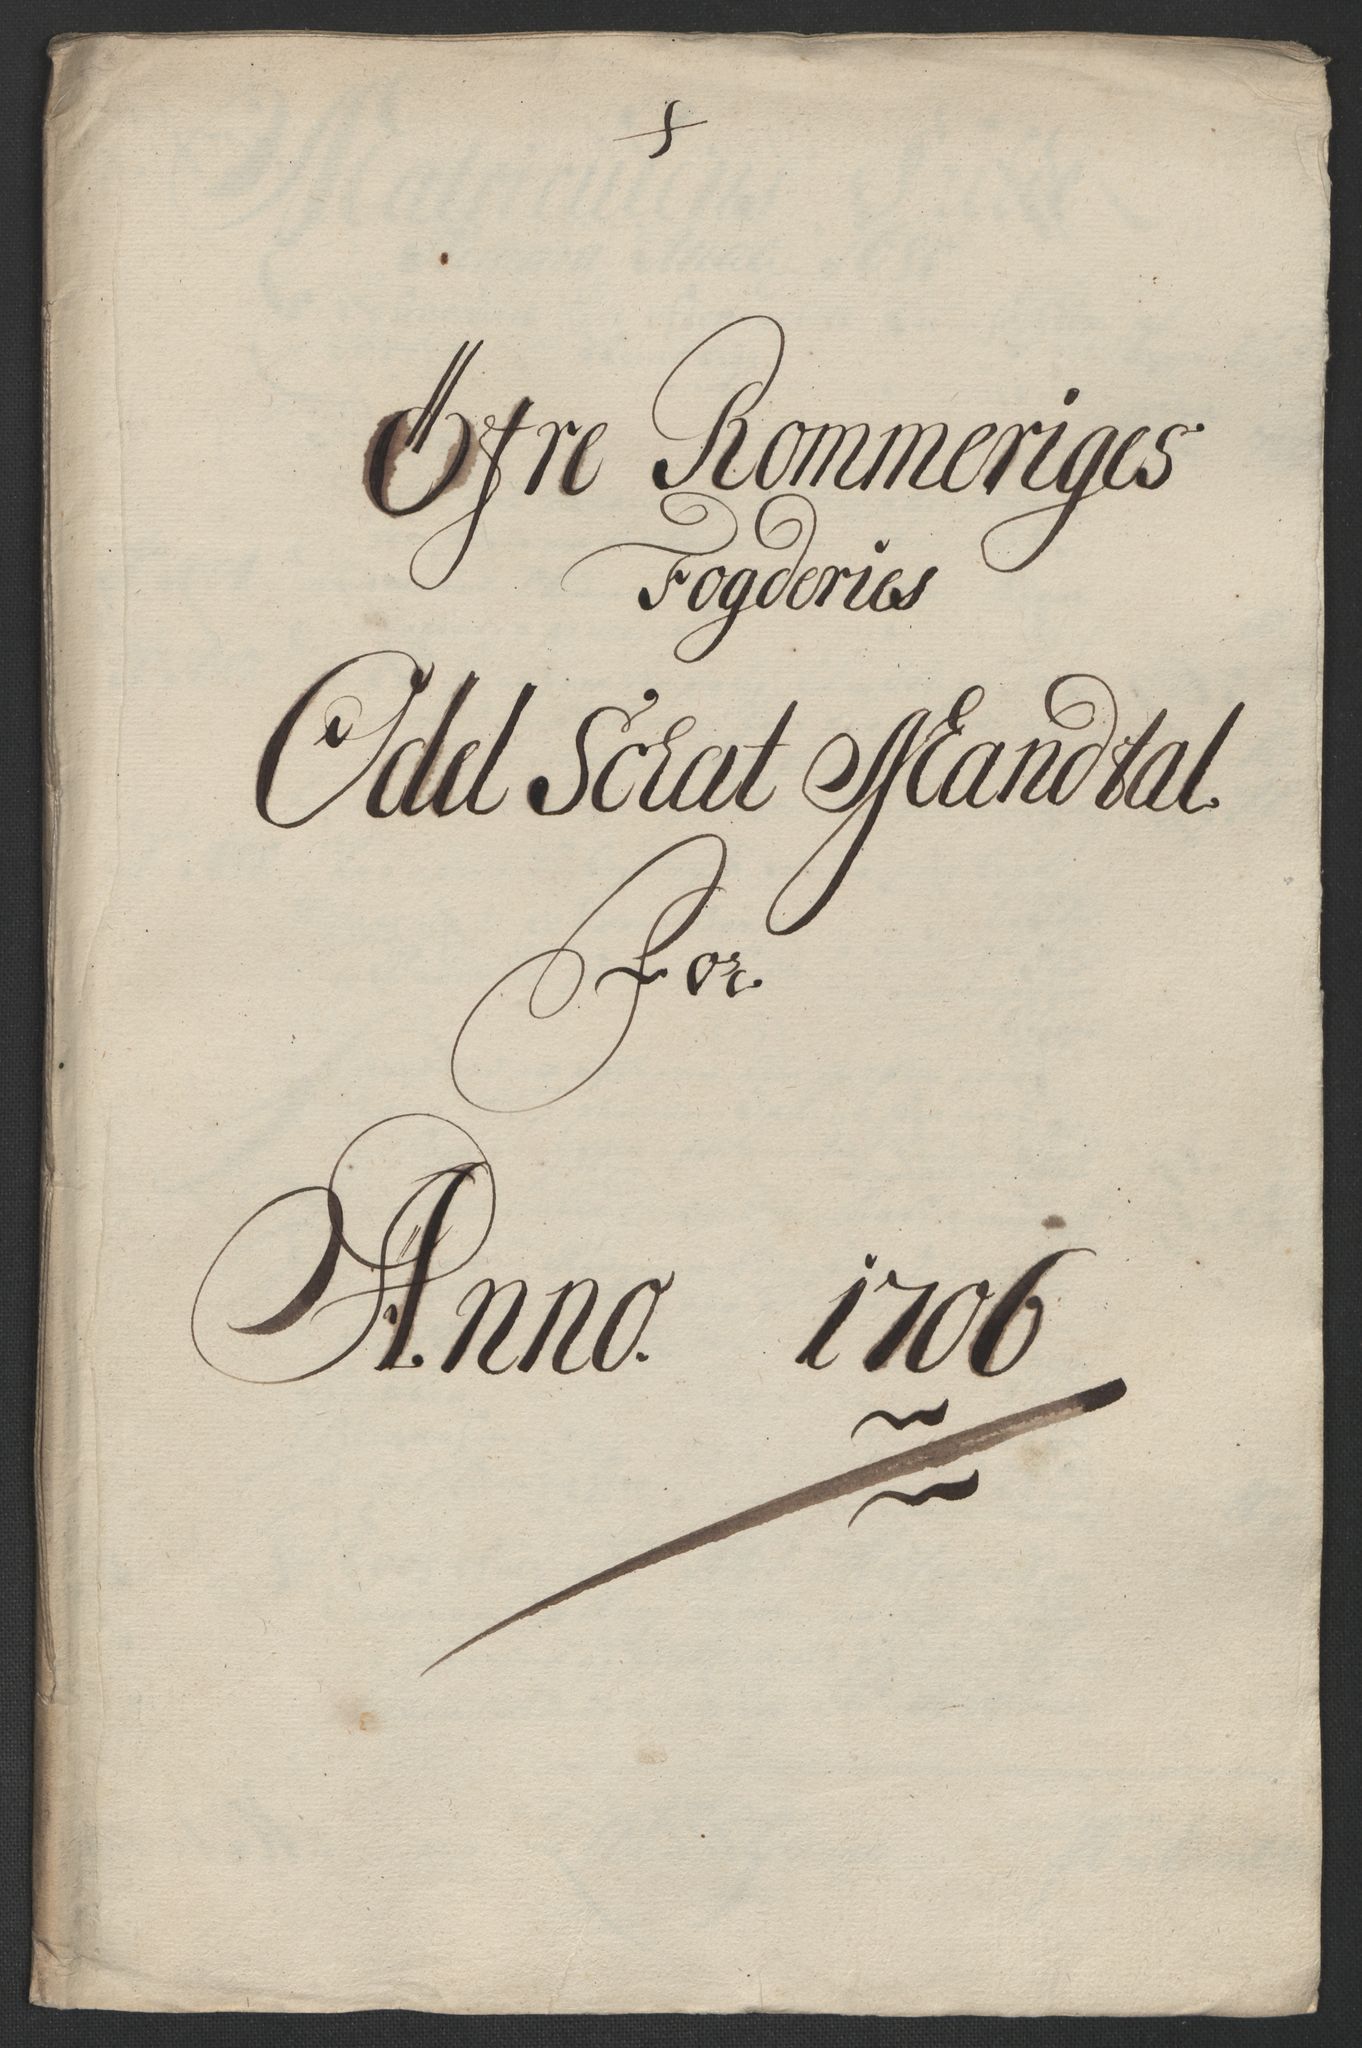 Öfre Rommeriges
Fogderies
Odel Schat Mandtal.
For.
Anno. 1706